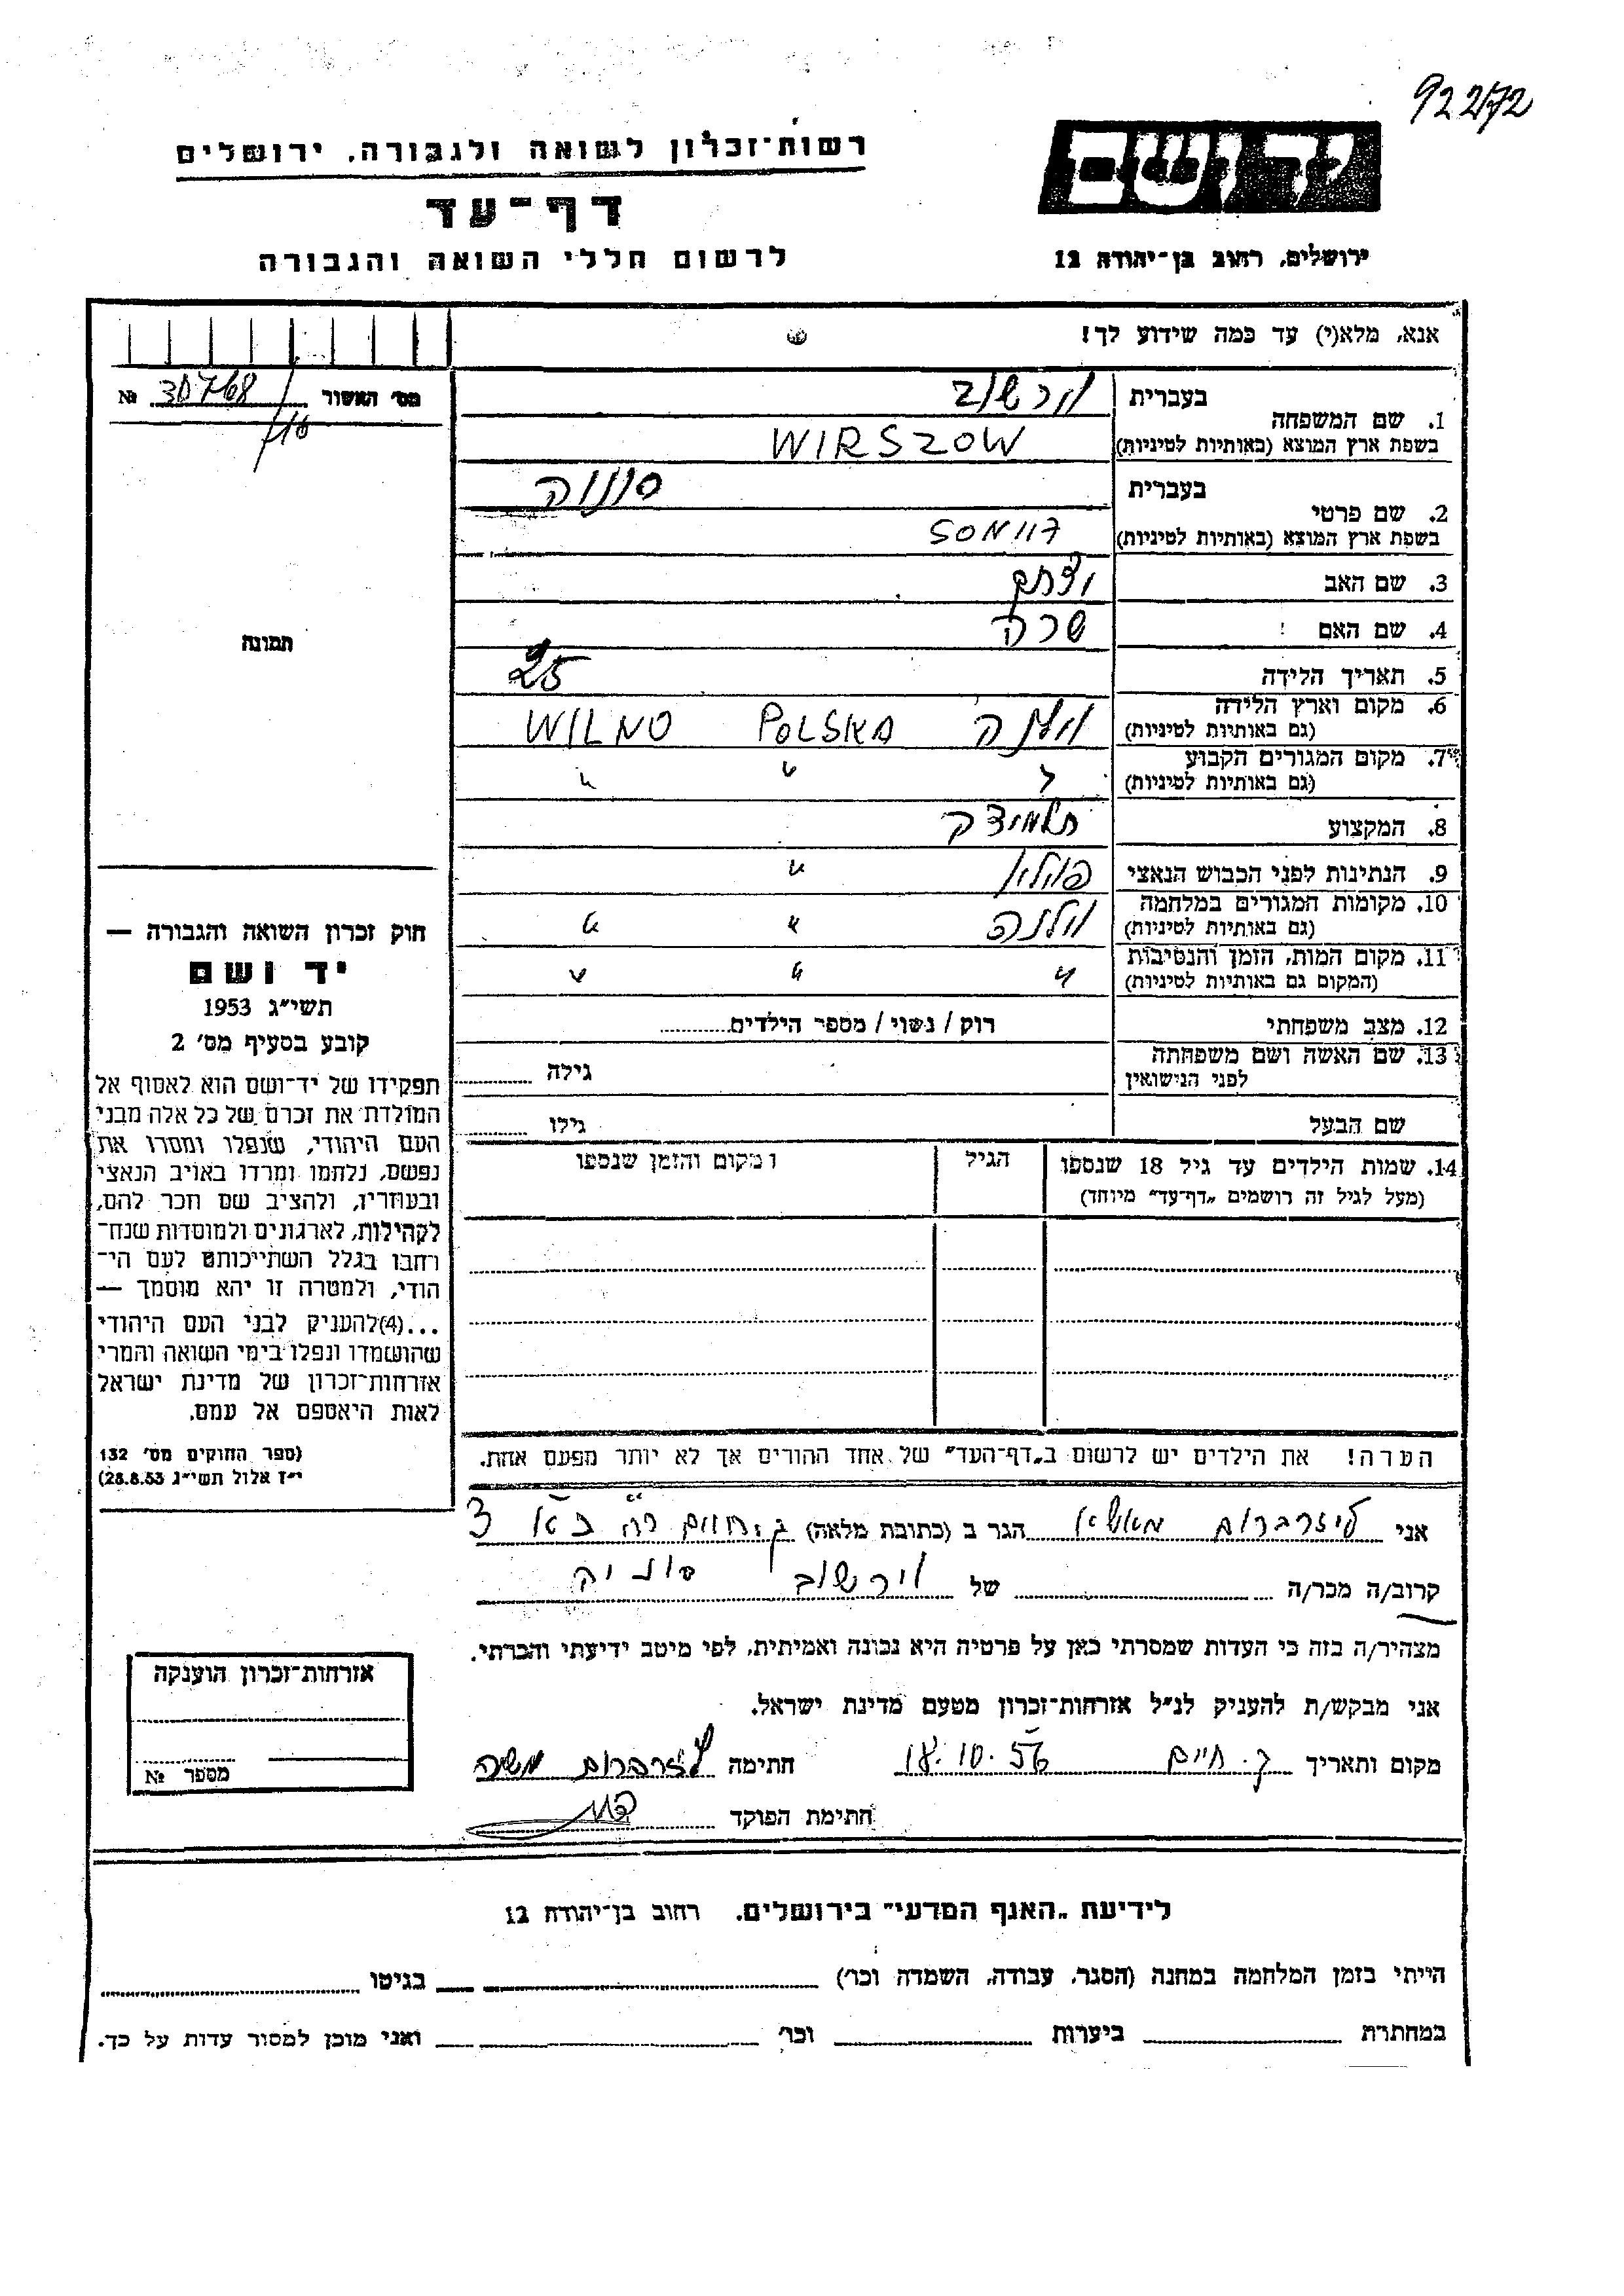 92272
רשות־זכרון לשואה ולגבורה, ירושלים
יד ושם
דף־עד
לרשום חללי השואה והגבורה
ירושלים, רחוב בן־יהודה 12
אנא, מלא(י) עד כמה שידוע לך!
מס׳ האשור 30768 №
/116
1. שם המשפחה
בעברית וירשוב
בשפת ארץ המוצא (באותיות לטיניות) WIRSZOW
2. שם פרטי
בעברית
בשפת ארץ המוצא (באותיות לטיניות)
3. שם האב יצחק
4. שם האם שרה
5. תאריך הלידה 25
6. מקום וארץ הלידה
(גם באותיות לטיניות) וילנה POLSKA WILNO
7. מקום המגורים הקבוע
(גם באותיות לטיניות) " " "
8. המקצוע תלמידה
9. הנתינות לפני הכבוש הנאצי פולין "
10. מקומות המגורים במלחמה
(גם באותיות לטיניות) וילנה " "
11. מקום המות, הזמן והנסיבות
(המקום גם באותיות לטיניות) " " "
12. מצב משפחתי רוק / נשוי / מספר הילדים
13. שם האשה ושם משפחתה
לפני הנישואין גילה
שם הבעל גילו
14. שמות הילדים עד גיל 18 שנספו הגיל ומקום והזמן שנספו
(מעל לגיל זה רושמים „דף־עד״ מיוחד)
תמונה
חוק זכרון השואה והגבורה —
יד ושם
תשי״ג 1953
קובע בסעיף מס׳ 2
תפקידו של יד־ושם הוא לאסוף אל
המולדת את זכרם של כל אלה מבני
העם היהודי, שנפלו ומסרו את
נפשם, נלחמו ומרדו באויב הנאצי
ובעוזריו, ולהציב שם וזכר להם,
לקהילות, לארגונים ולמוסדות שנח־
רחבו בגלל השתייכותם לעם הי־
הודי, ולמטרה זו יהא מוסמך —
...(4)להעניק לבני העם היהודי
שהושמדו ונפלו בימי השואה והמרי
אזרחות־זכרון של מדינת ישראל
לאות היאספם אל עמם.
(ספר החוקים מס׳ 132
י״ז אלול תשי״ג 28.8.53)
הערה! את הילדים יש לרשום ב„דף־העד״ של אחד ההורים אך לא יותר מפעם אחת.
אני הגר ב (כתובת מלאה)
קרוב/ה מכר/ה של וירשוב סוניה
מצהיר/ה בזה כי העדות שמסרתי כאן על פרטיה היא נכונה ואמיתית, לפי מיטב ידיעתי והכרתי.
אני מבקש/ת להעניק לנ״ל אזרחות־זכרון מטעם מדינת ישראל.
מקום ותאריך ק. חיים 18.10.56 חתימה
חתימת הפוקד
אזרחות־זכרון הוענקה
מספר №
לידיעת „האגף המדעי״ בירושלים, רחוב בן־יהודה 12
הייתי בזמן המלחמה במחנה (הסגר, עבודה, השמדה וכו׳) בגיטו
במחתרת ביערות וכו׳ ואני מוכן למסור עדות על כך.